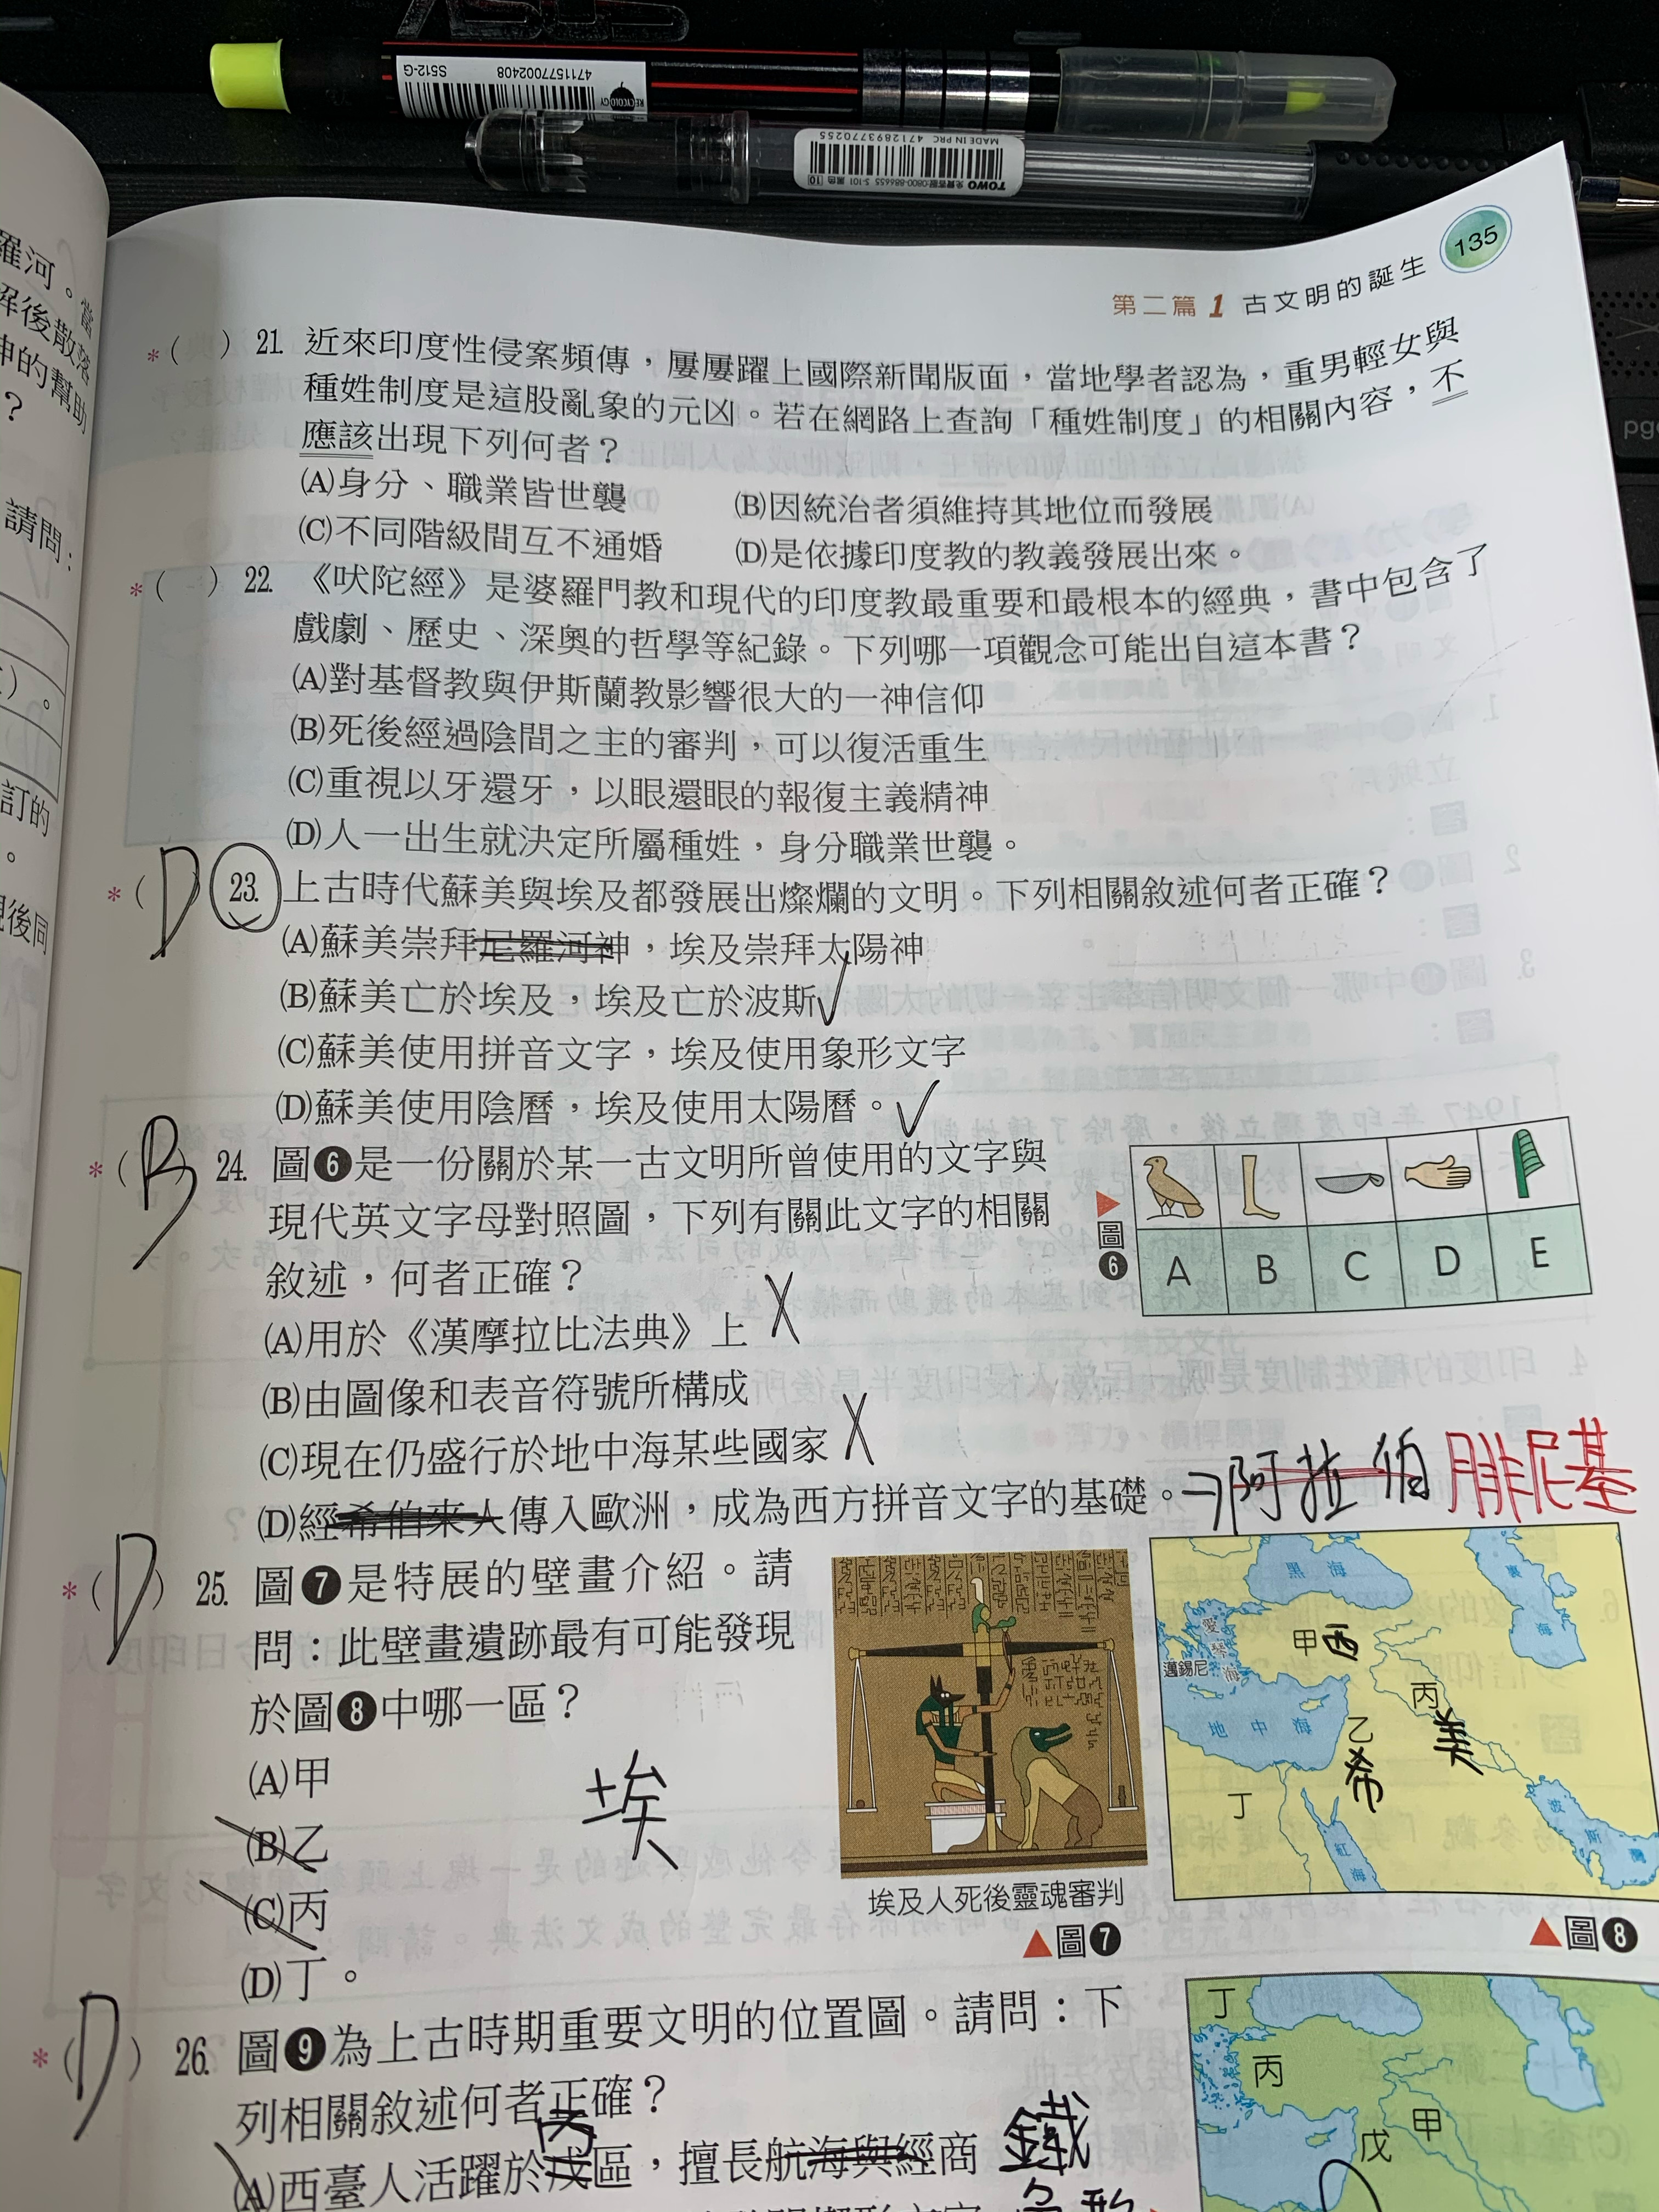 ASUS
4711577002408
S512-G
RECYCOLOGY
MADE IN PRC 4712893770255
TOWO
免費客服:0800-886655 S-101 黑色 10
pg
羅河。當
解後散落
神的幫助
？
請問：
）。
訂的
。
視後同
135
第二篇 1 古文明的誕生
*( ) 21. 近來印度性侵案頻傳，屢屢躍上國際新聞版面，當地學者認為，重男輕女與
種姓制度是這股亂象的元凶。若在網路上查詢「種姓制度」的相關內容，不
應該出現下列何者？
(A)身分、職業皆世襲 (B)因統治者須維持其地位而發展
(C)不同階級間互不通婚 (D)是依據印度教的教義發展出來。
*( ) 22. 《吠陀經》是婆羅門教和現代的印度教最重要和最根本的經典，書中包含了
戲劇、歷史、深奧的哲學等紀錄。下列哪一項觀念可能出自這本書？
(A)對基督教與伊斯蘭教影響很大的一神信仰
(B)死後經過陰間之主的審判，可以復活重生
(C)重視以牙還牙，以眼還眼的報復主義精神
(D)人一出生就決定所屬種姓，身分職業世襲。
*(D) 23. 上古時代蘇美與埃及都發展出燦爛的文明。下列相關敘述何者正確？
(A)蘇美崇拜尼羅河神，埃及崇拜太陽神
(B)蘇美亡於埃及，埃及亡於波斯
(C)蘇美使用拼音文字，埃及使用象形文字
(D)蘇美使用陰曆，埃及使用太陽曆。
*(B) 24. 圖6是一份關於某一古文明所曾使用的文字與
現代英文字母對照圖，下列有關此文字的相關
敘述，何者正確？
(A)用於《漢摩拉比法典》上 X
(B)由圖像和表音符號所構成
(C)現在仍盛行於地中海某些國家 X
(D)經希伯來人傳入歐洲，成為西方拼音文字的基礎。→阿拉伯 腓尼基
▶圖6
A B C D E
*(D) 25. 圖7是特展的壁畫介紹。請
問：此壁畫遺跡最有可能發現
於圖8中哪一區？
(A)甲
(B)乙
(C)丙
(D)丁。
埃
埃及人死後靈魂審判
▲圖7
黑海
裏海
愛琴海
邁錫尼
甲 西
丙 美
地中海
乙 希
丁
紅海
波斯灣
▲圖8
*(D) 26. 圖9為上古時期重要文明的位置圖。請問：下
列相關敘述何者正確？
丙
(A)西臺人活躍於戊區，擅長航海與經商 鐵
丁
丙
甲
戊